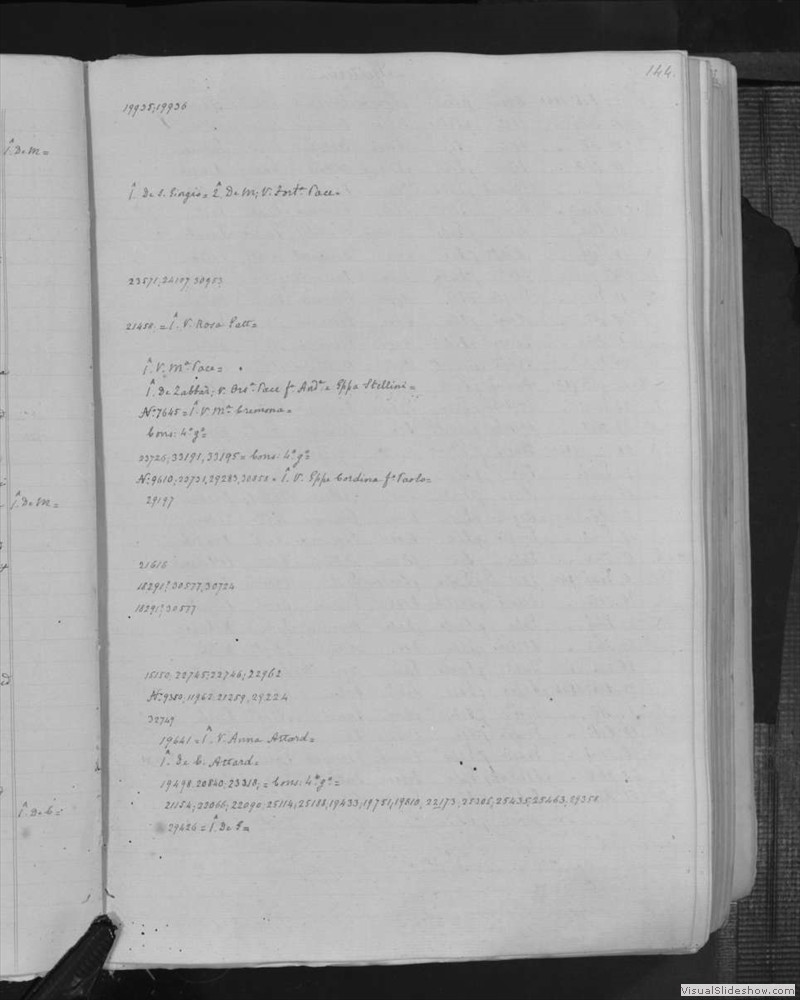 144.
19935;19936
Î. De M=
Î. De S. Giorgio= 2̂. De M; V. Fort.ª Pace=
23571;24107;30953
21458.= Î. V. Rosa Patt=
Î. V. M.ª Pace=
Î. De Zabbar; V. Ors.ª Pace f.ª And.ª e Gppa Stellini=
Nº 7645= Î. V. M.ª Cremona=
Cons: 4º gº=
23726;33191,33195= Cons: 4º gº=
Nº 9610;23731,29283,30858= Î. V. Gppe Cordina fº Paolo=
29197
Î. De M=
21616
18291?30577,30724
18291?30577
15150;22745;22746;22962
Nº 9380,11962.21259,29224
32749
19641= Î. V. Anna Attard=
Î. De C. Attard=
19498.20840;23318;= Cons: 4º gº=
21154;22066;22090;25114;25188,19433;19751,19810,22173;25305,25435;25463,29358
Î. De C=
29426= Î. De F=
VisualSlideshow.com